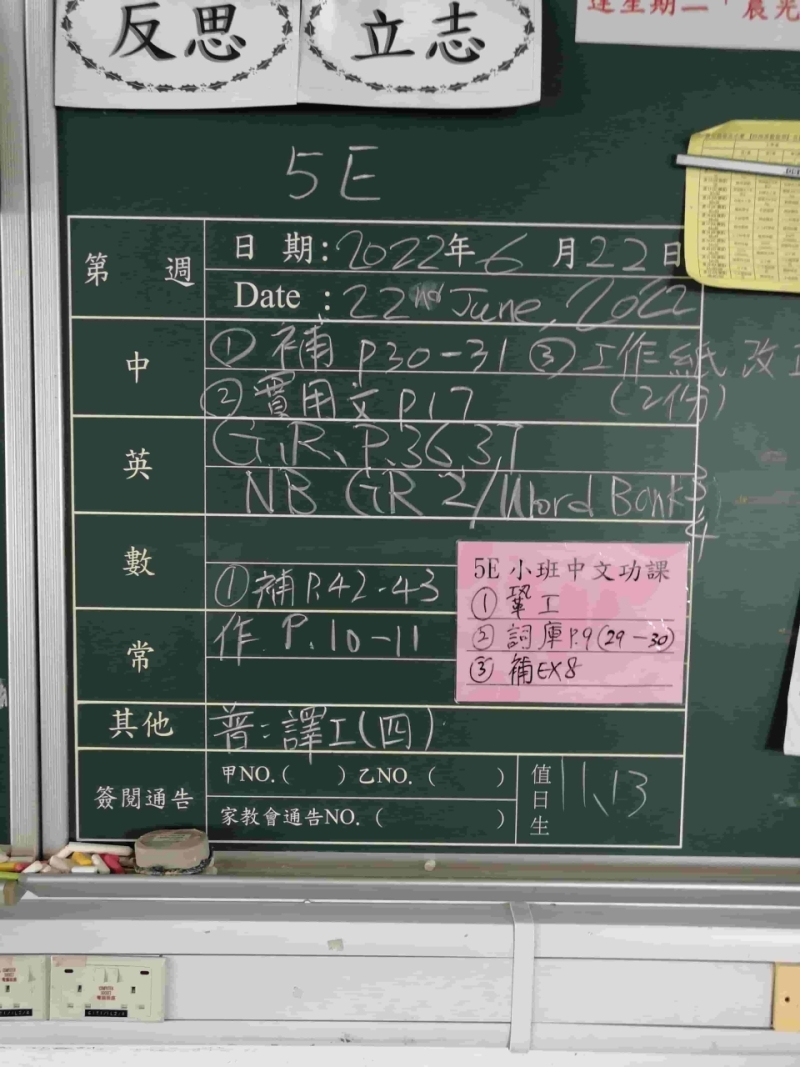 反思 立志
逢星期二「晨光
5E
第 週
日 期: 2022年 6 月 22 日
Date : 22nd June, 2022
中
① 補 P30-31 ③ 工作紙 改正
② 實用文 P17 (2份)
英
G.R. P.36,37
NB GR 2/Word Bank 3
4
數
① 補 P.42-43
5E 小班中文功課
① 鞏工
② 詞庫 P.9 (29-30)
③ 補EX8
常
作 P.10-11
其他
普: 譯工(四)
簽閱通告
甲NO.( ) 乙NO. ( )
家教會通告NO. ( )
值日生 11、13